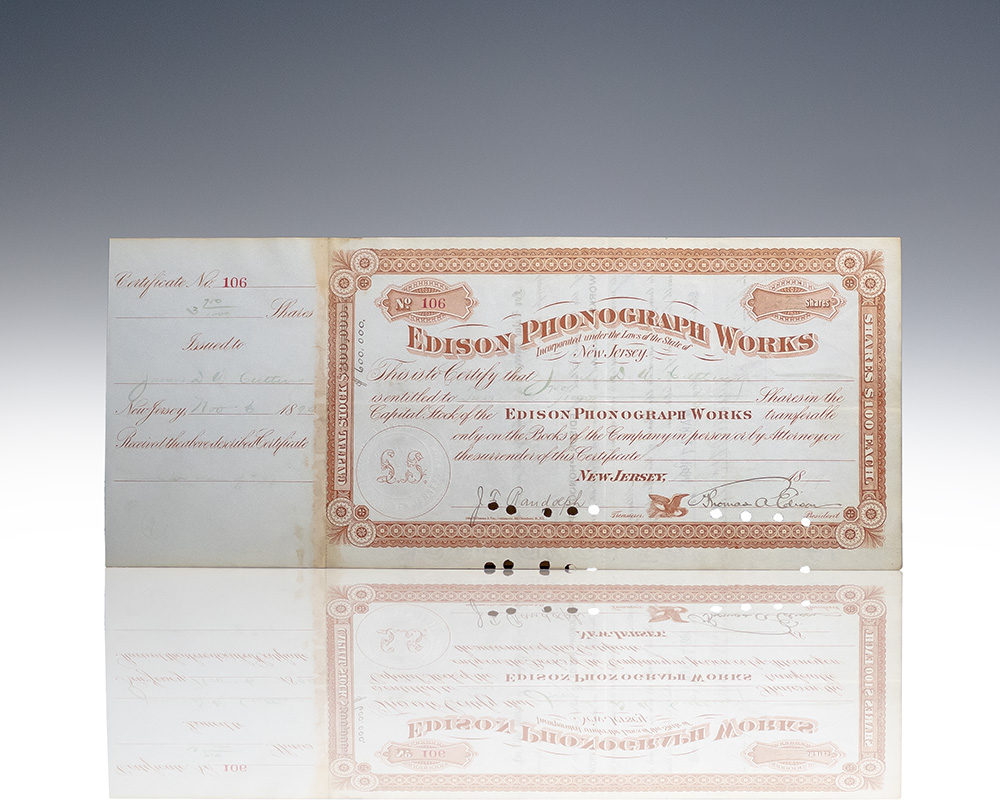 Certificate No. 106
3 700/1000 Shares
Issued to
New Jersey, Nov 6 18
Received the above described Certificate
CAPITAL STOCK $300,000.
$600,000.
No 106
Shares
EDISON PHONOGRAPH WORKS
Incorporated under the Laws of the State of
New Jersey.
This is to Certify that
is entitled to Shares in the
Capital Stock of the EDISON PHONOGRAPH WORKS transferable
only on the Books of the Company in person or by Attorney on
the surrender of this Certificate
NEW JERSEY, 18
J F Randolph Treasurer. Thomas A Edison President
SHARES $100 EACH.